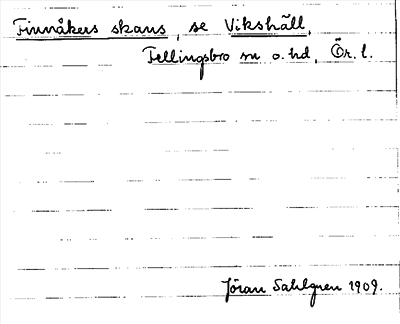 Finnåkers skans, se Vikshäll,
Fellingsbro sn o. hd, Ör. l.
Jöran Sahlgren 1909.